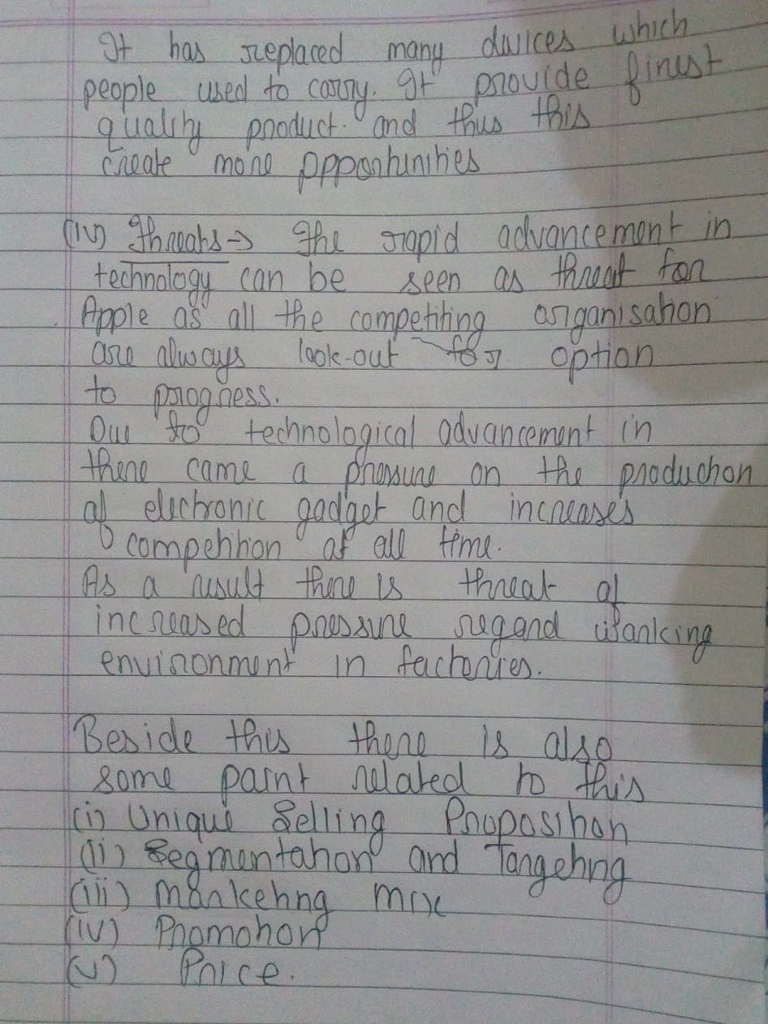 It has replaced many devices which
people used to carry. It provide finest
quality product. and thus this
create more opportunities
(iv) Threats → The rapid advancement in
technology can be seen as threat for
Apple as all the competiting organisation
are always look-out for option
to progress.
Due to technological advancement in
there came a pressure on the production
of electronic gadget and increases
competition at all time.
As a result there is threat of
increased pressure regard wanking
environment in factories.
Beside this there is also
some paint related to this
(i) Unique Selling Proposition
(ii) Segmentation and Targeting
(iii) Marketing mix
(iv) Promotion
(v) Price.